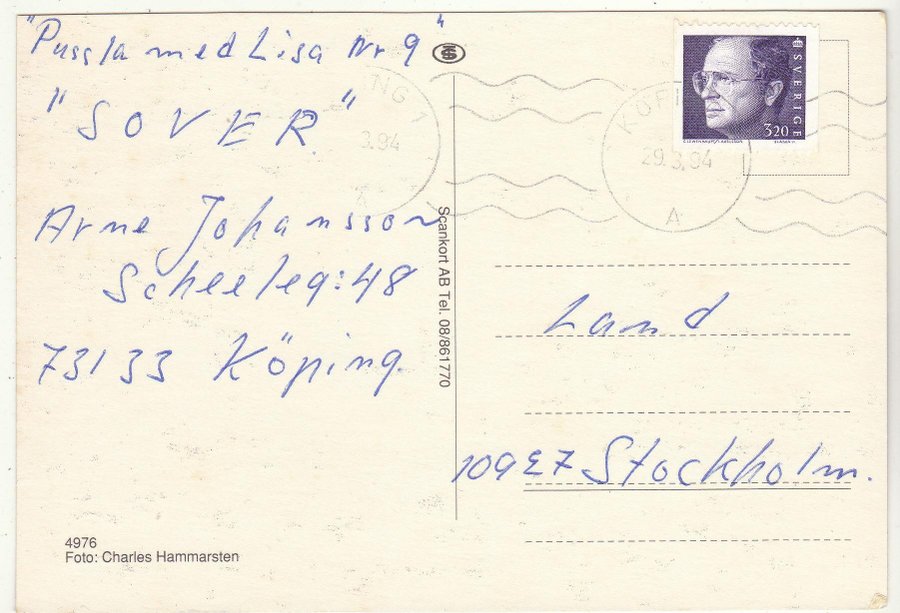 "Pussla med Lisa Nr 9"
"SOVER."
Arne Johansson
Scheeleg:48
73133 Köping.
4976
Foto: Charles Hammarsten
Scankort AB Tel. 08/861770
NG 1
3.94
A
KÖPI
29.3.94
A
SVERIGE
3.20
Land
10927 Stockholm.